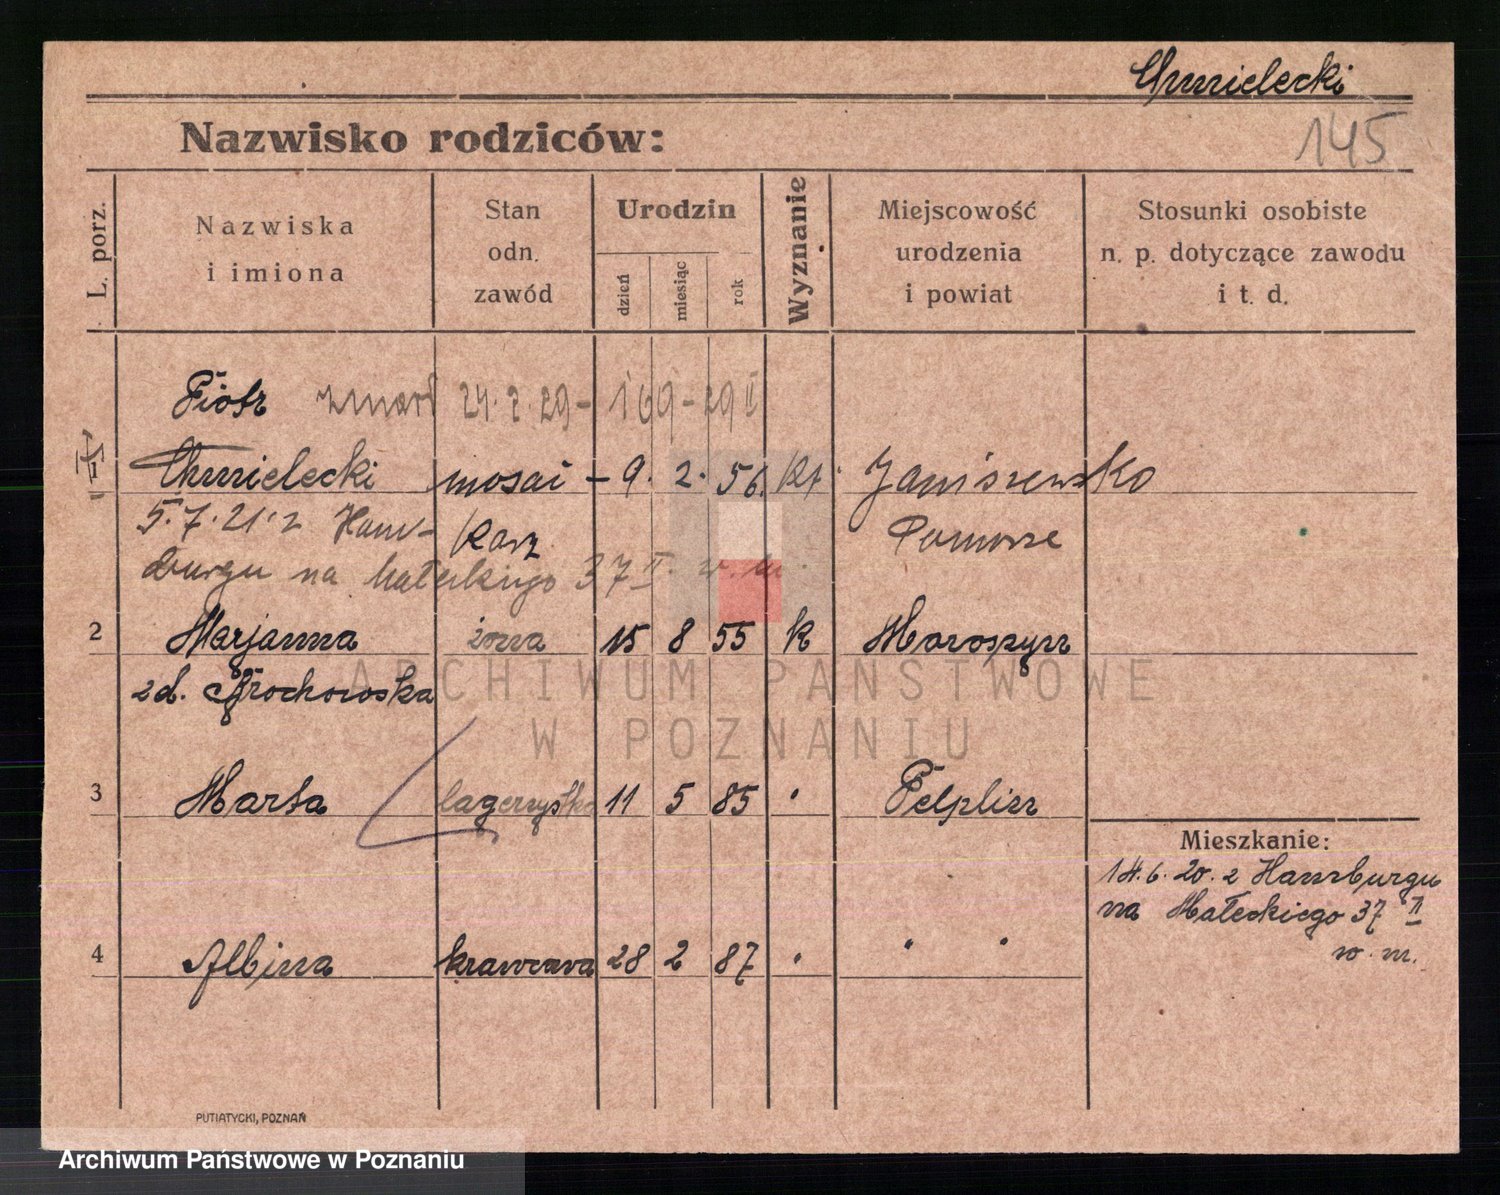 Chmielecki
Nazwisko rodziców:
145
L. porz.
Nazwiska
i imiona
Stan
odn.
zawód
Urodzin
dzień
miesiąc
rok
Wyznanie
Miejscowość
urodzenia
i powiat
Stosunki osobiste
n. p. dotyczące zawodu
i t. d.
Piotr zmarł 24.2.29 - 169-29 II
Chmielecki mosai- 9. 2. 56. Kt. Janiszewsko
5.7.21 z Ham-
karz Pomorze
burgu na Małeckiego 37 II w. m.
2 Marjanna żona 15 8 55 k Morospyn
zd. Grochowska
3 Marta 11 5 85 " Pelplin
Mieszkanie:
14.6.20. z Hamburgu
na Małeckiego 37 II
w. m.
4 Albina krawcowa 28 2 87 " " "
PUTIATYCKI, POZNAŃ
ARCHIWUM PAŃSTWOWE
W POZNANIU
Archiwum Państwowe w Poznaniu